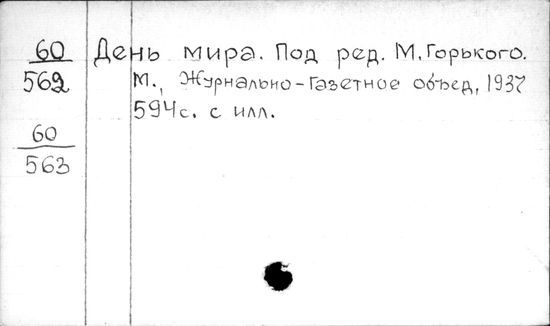 60 День мира. Под ред. М. Горького.
562 М., Журнально-Газетное объед, 1937
594с. с илл.
60
563